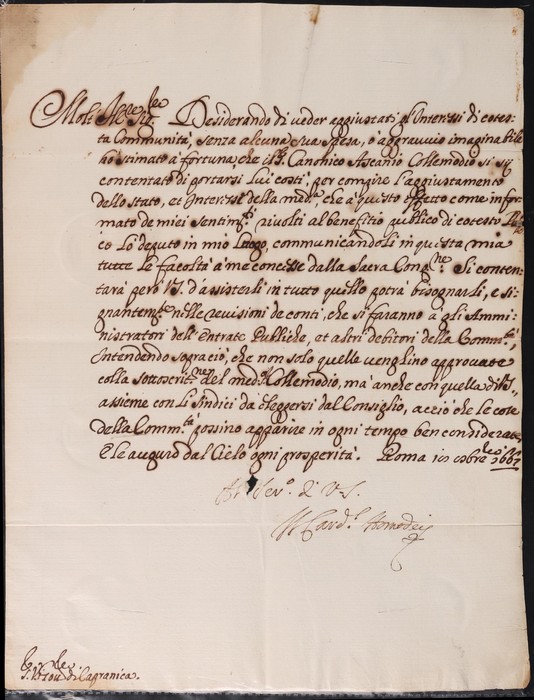 Molt' Ill.re Sig.re Desiderando di veder aggiustati gl'Interessi di cotes-
ta Communità, senza alcuna sua spesa, ò aggravvio imaginabile
hò stimato à fortuna, che il S.r Canonico Ascanio Collemodio si sij
contentato di portarsi lui costì, per compire l'aggiustamento
dello stato, et Interesse della med.a, che à questo effetto come infor-
mato de miei sentim.ti rivolti al benefitio publico di cotesto
co Lo deputo in mio luogo, communicandoli in questa mia
tutte le facoltà à me concesse dalla Sacra Cong.ne. Si conten-
tarà però V.S. d'assisterli in tutto quello potrà bisognarli, e si-
gnantem.te nelle revisioni de conti, che si faranno à gli Ammi-
nistratori dell'Entrate Publiche, et altri debitori della Comm.tà,
Intendendo sopraciò, che non solo quelle venghino approvate
colla sottoscrit.ne del med.o Collemodio, mà anche con quella di V.S.
assieme con li Sindici da eleggersi dal Consiglio, acciò che le cose
della Comm.tà possino apparire in ogni tempo ben considerate,
E le auguro dal Cielo ogni prosperità. Roma
di V.S.
Il Card.l Homodei
di Capranica.